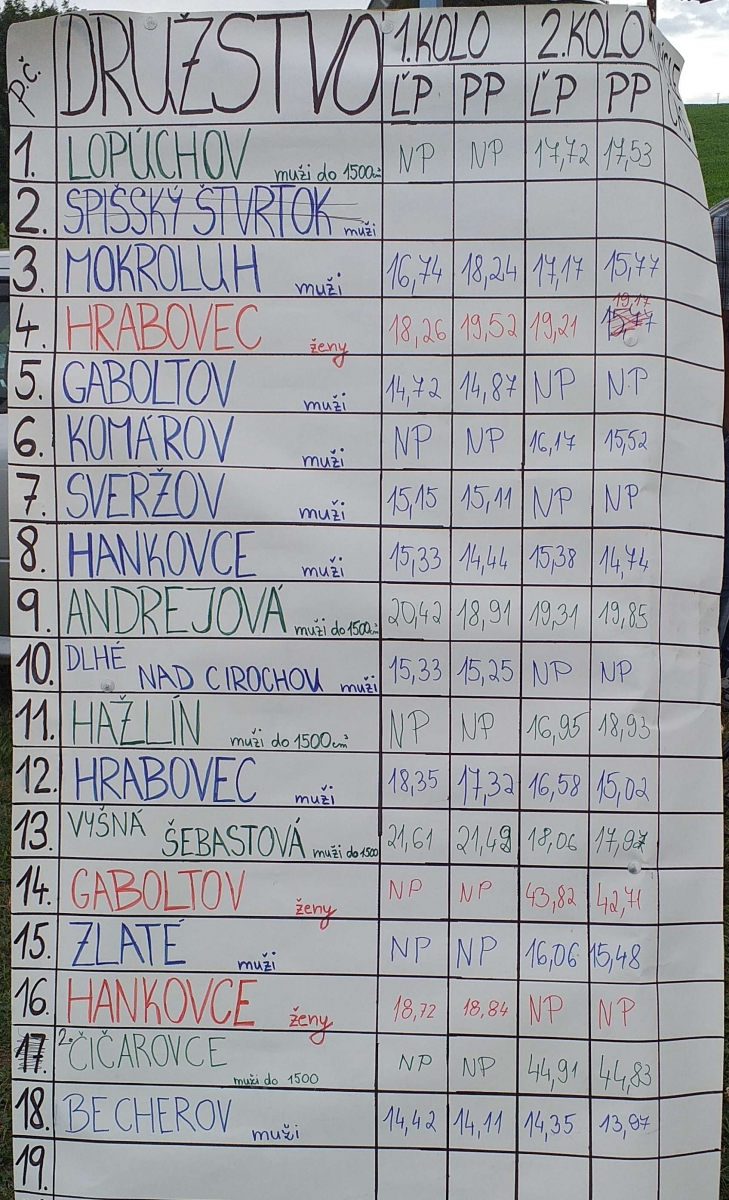 P.č. DRUŽSTVO 1.KOLO 2.KOLO
ĽP PP ĽP PP
1. LOPÚCHOV muži do 1500cm³ NP NP 17,72 17,53
2. SPIŠSKÝ ŠTVRTOK muži
3. MOKROLUH muži 16,74 18,24 17,17 15,77
4. HRABOVEC ženy 18,26 19,52 19,21 19,17
5. GABOLTOV muži 14,72 14,87 NP NP
6. KOMÁROV muži NP NP 16,17 15,52
7. SVERŽOV muži 15,15 15,11 NP NP
8. HANKOVCE muži 15,33 14,44 15,38 14,74
9. ANDREJOVÁ muži do 1500cm³ 20,42 18,91 19,31 19,85
10. DLHÉ NAD CIROCHOU muži 15,33 15,25 NP NP
11. HAŽLÍN muži do 1500cm³ NP NP 16,95 18,93
12. HRABOVEC muži 18,35 17,32 16,58 15,02
13. VYŠNÁ ŠEBASTOVÁ muži do 1500 21,61 21,49 18,06 17,97
14. GABOLTOV ženy NP NP 43,82 42,71
15. ZLATÉ muži NP NP 16,06 15,48
16. HANKOVCE ženy 18,72 18,84 NP NP
17. 2. ČIČAROVCE muži do 1500 NP NP 44,91 44,83
18. BECHEROV muži 14,42 14,11 14,35 13,97
19.